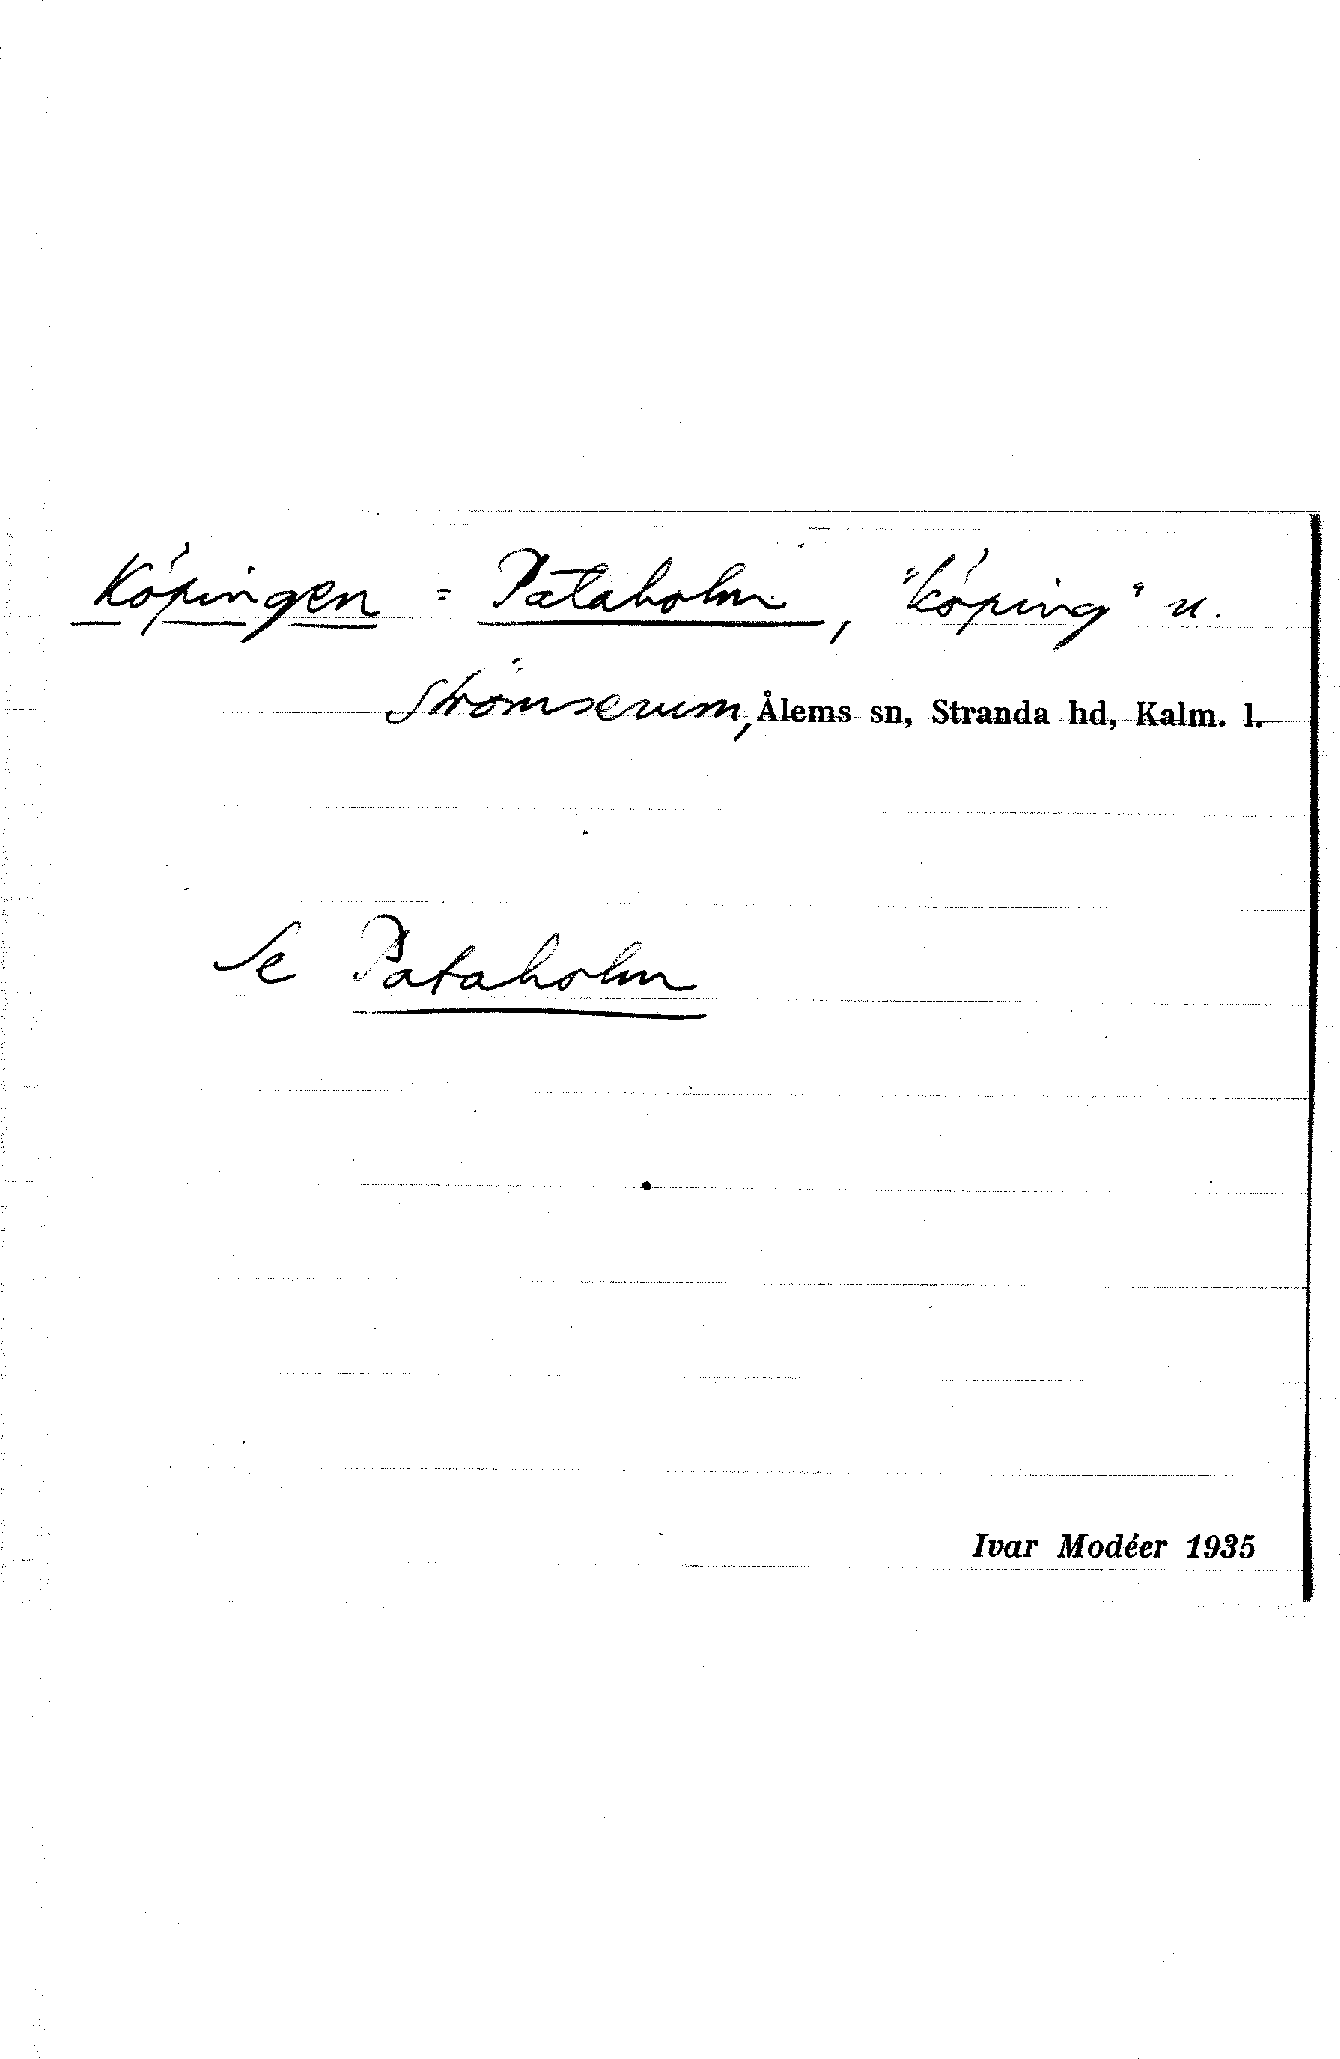 Köpingen = Pataholm, "köping" u.
Strömserum, Ålems sn, Stranda hd, Kalm. l.
Se Pataholm
Ivar Modéer 1935